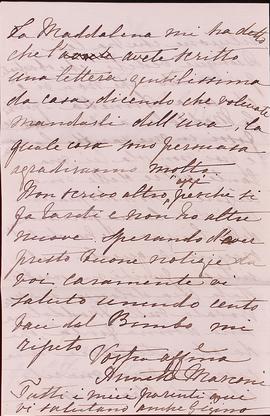 La Maddalena mi ha detto
che l' avete scritto
una lettera gentilissima
da casa, dicendo che volevate
mandarli dell'uva, la
quale cosa sono persuasa
gradiranno molto.
Non scrivo altro, perchè si
fa tardi e non ho altre
nuove. Sperando d'aver
presto buone notizie da
voi caramente vi
saluto unendo cento
baci dal Bimbo mi
ripeto
Vostra affma
Marconi
Tutti i miei parenti
vi salutano anche